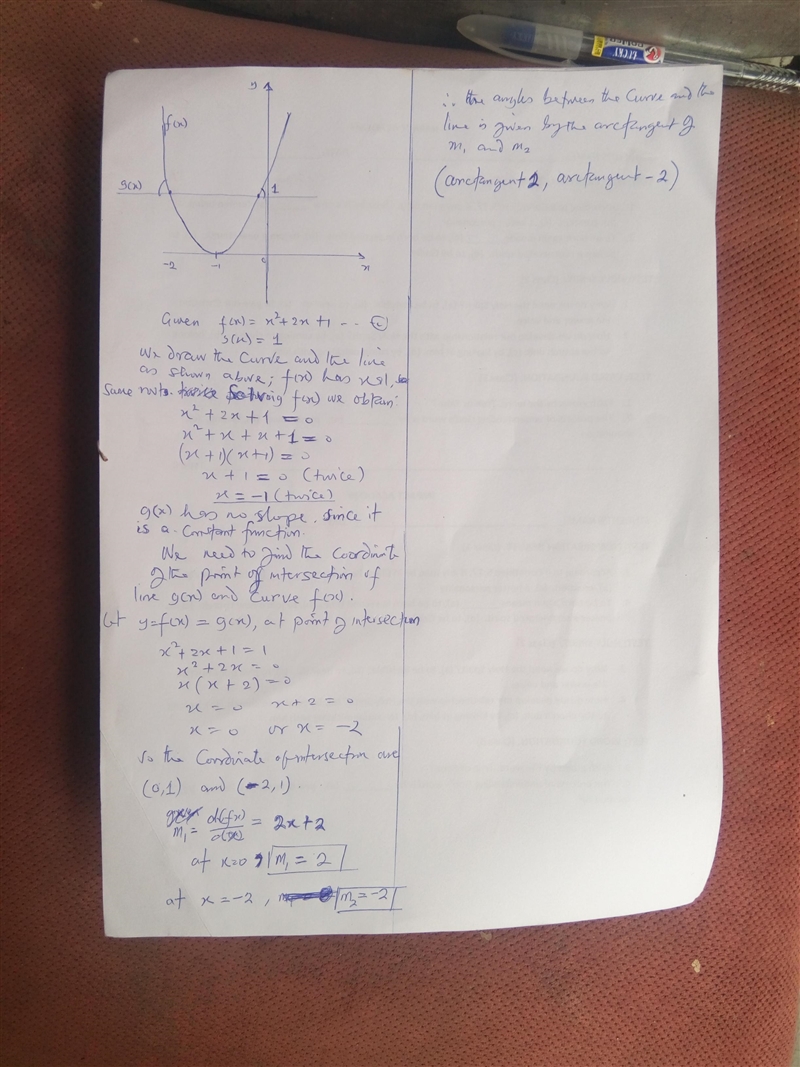 y
f(x)
g(x)
1
-2
-1
0
x
Given f(x) = x²+2x+1 ---
g(x) = 1
We draw the curve and the line
as shown above; f(x) has
same roots. Solving f(x) we obtain:
x² + 2x + 1 = 0
x² + x + x + 1 = 0
(x+1)(x+1) = 0
x + 1 = 0 (twice)
x = -1 (twice)
g(x) has no slope, since it
is a constant function.
We need to find the coordinate
of the point of intersection of
line g(x) and curve f(x).
Let y=f(x) = g(x), at point of intersection
x²+2x+1=1
x²+2x=0
x(x+2)=0
x=0 x+2=0
x=0 or x=-2
so the coordinate of intersection are
(0,1) and (-2,1).
m₁ = d(fx)/d(x) = 2x+2
at x=0, m₁ = 2
at x=-2, m₂=-2
∴ the angles between the curve and the
line is given by the arctangent of
m₁ and m₂
(arctangent 2, arctangent -2)